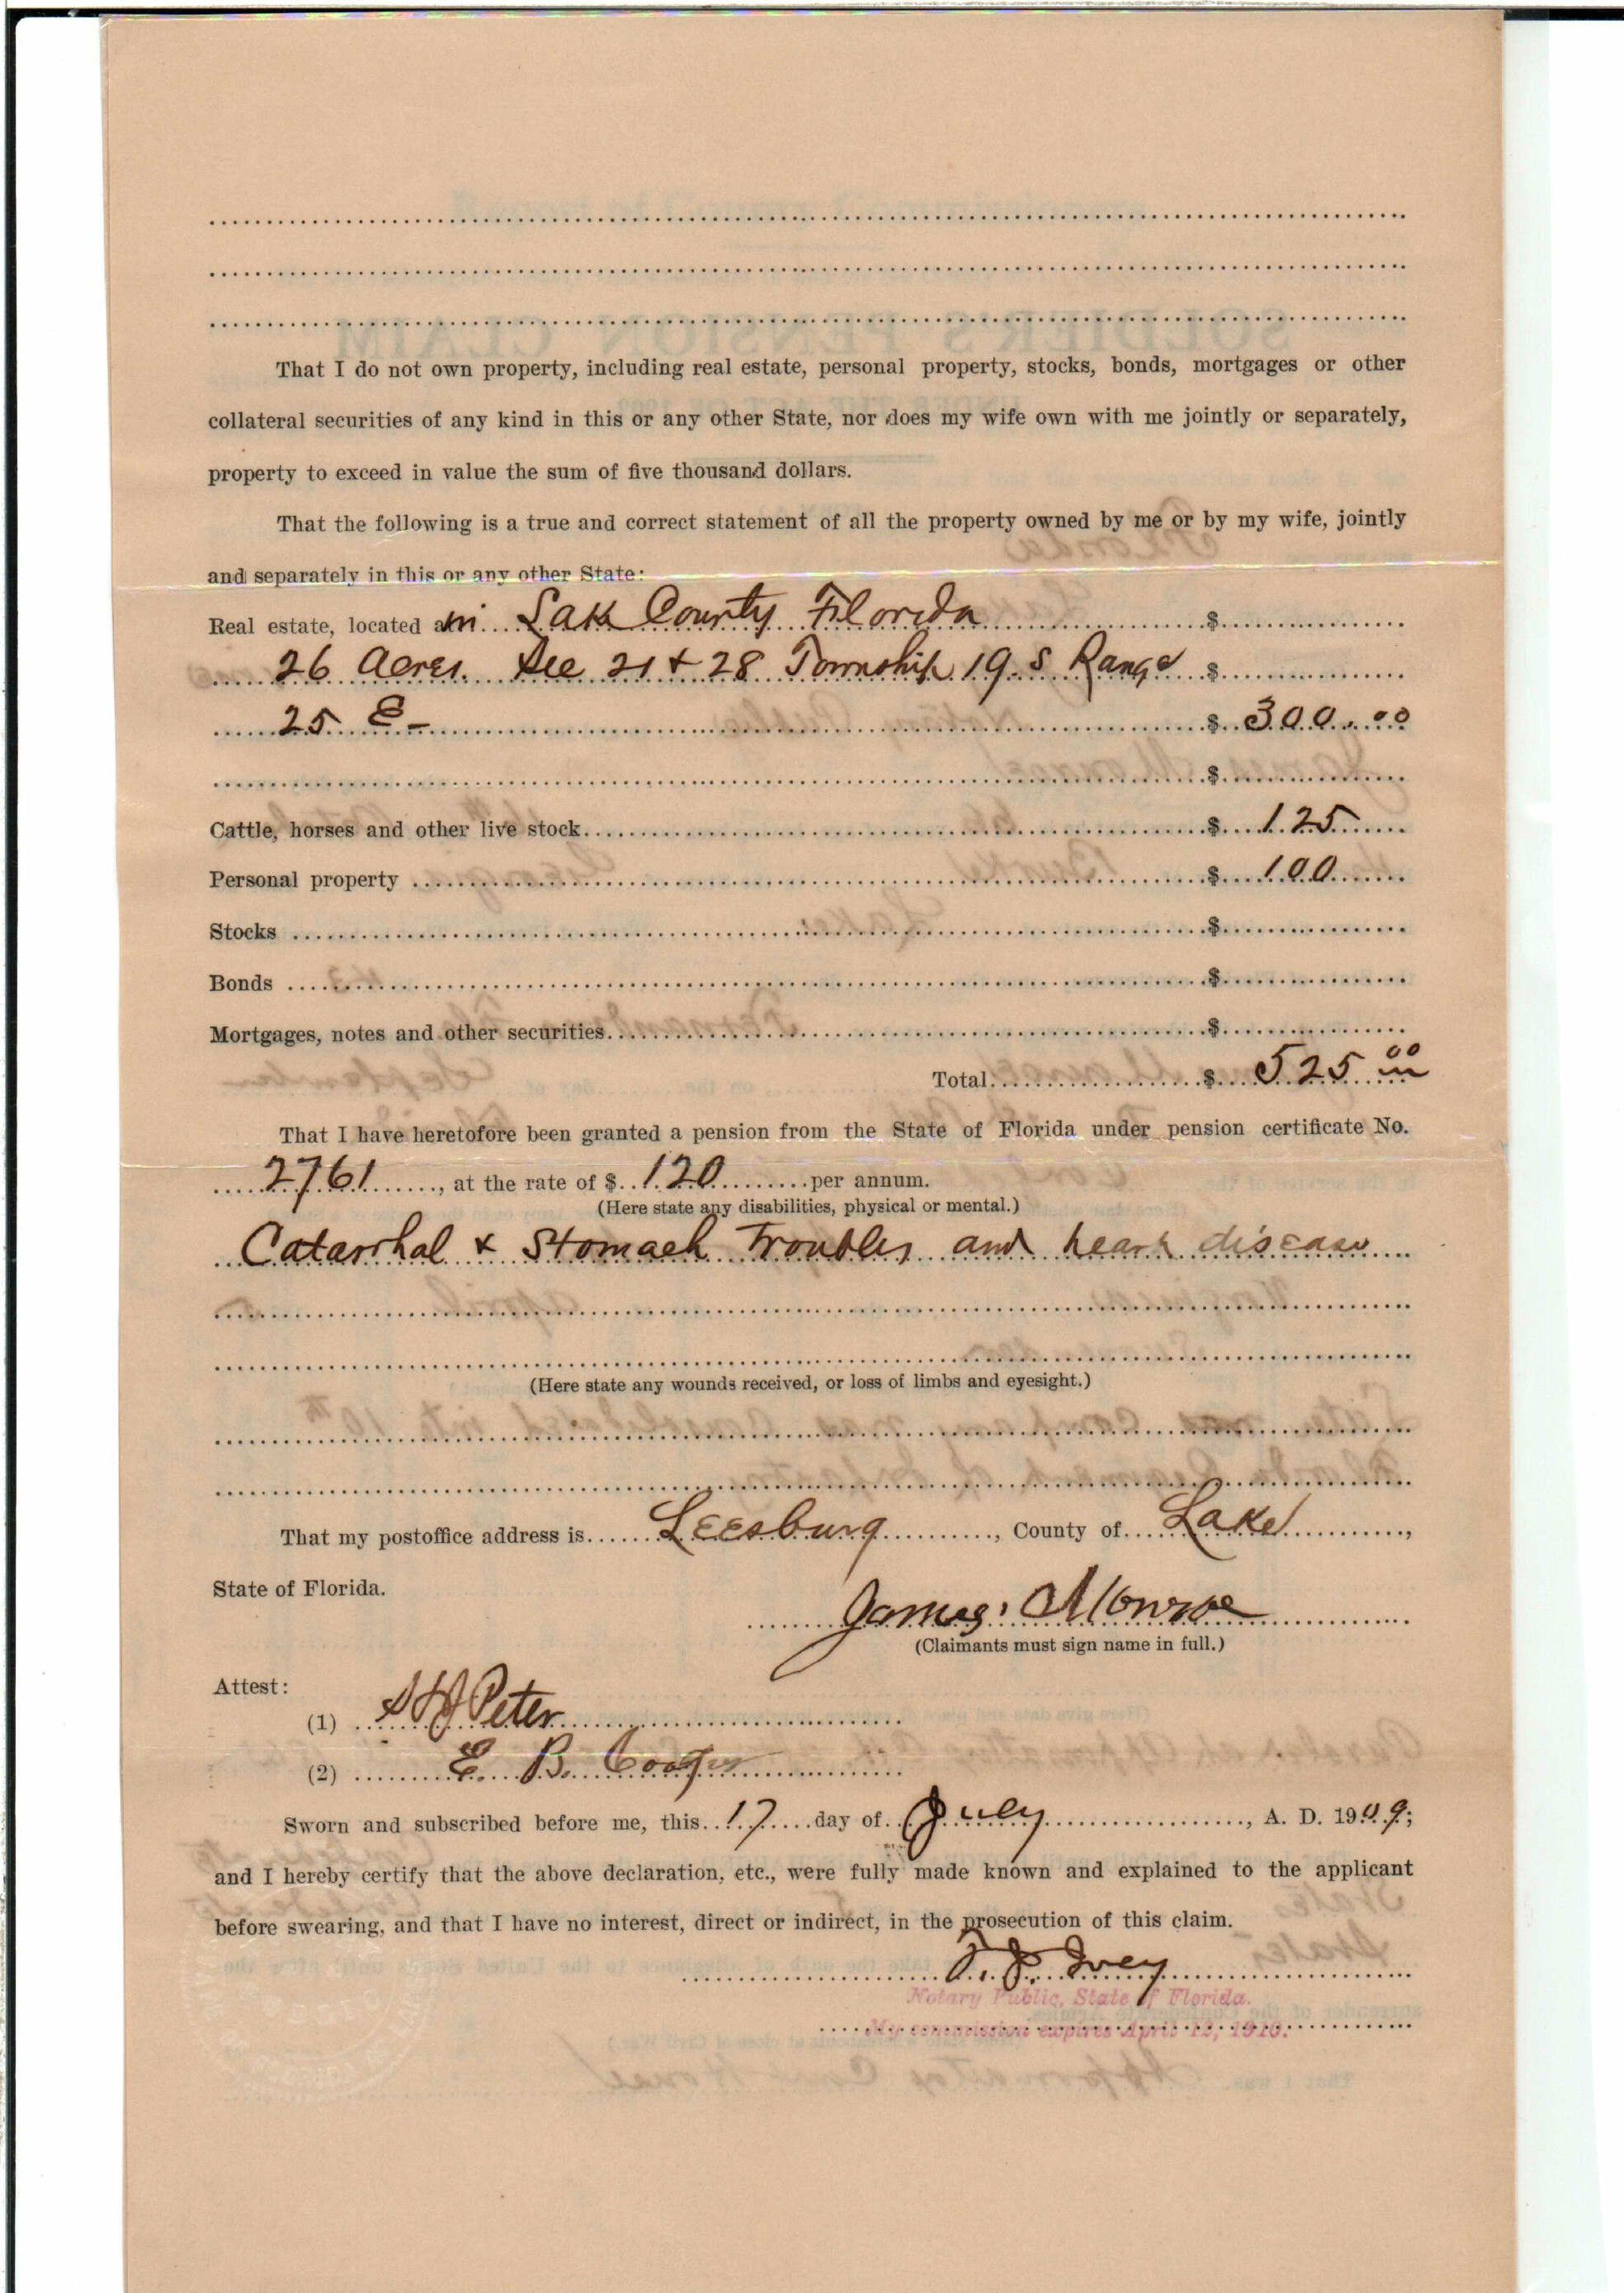 That I do not own property, including real estate, personal property, stocks, bonds, mortgages or other
collateral securities of any kind in this or any other State, nor does my wife own with me jointly or separately,
property to exceed in value the sum of five thousand dollars.
That the following is a true and correct statement of all the property owned by me or by my wife, jointly
and separately in this or any other State:
Real estate, located in Lake County Florida $
26 Acres. Sec 21 + 28 Township 19. S Range $
25 E - $ 300.00
$
Cattle, horses and other live stock $ 125
Personal property $ 100
Stocks $
Bonds $
Mortgages, notes and other securities $
Total $ 525 00
That I have heretofore been granted a pension from the State of Florida under pension certificate No.
2761, at the rate of $ 120 per annum.
(Here state any disabilities, physical or mental.)
Catarrhal & Stomach Troubles and heart disease
(Here state any wounds received, or loss of limbs and eyesight.)
That my postoffice address is Leesburg, County of Lake,
State of Florida.
James Monroe
(Claimants must sign name in full.)
Attest:
(1) Peter
(2) E. B.
Sworn and subscribed before me, this 17 day of July, A. D. 1909;
and I hereby certify that the above declaration, etc., were fully made known and explained to the applicant
before swearing, and that I have no interest, direct or indirect, in the prosecution of this claim.
Ivey
Notary Public, State of Florida.
My commission expires April 12, 1910.